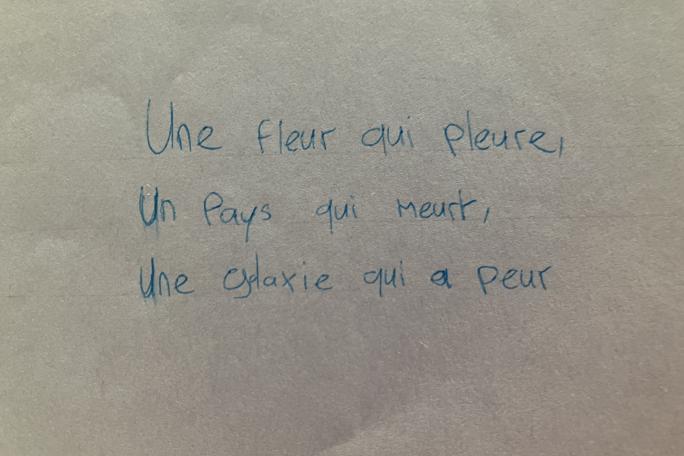 Une fleur qui pleure,
Un Pays qui meurt,
Une galaxie qui a peur